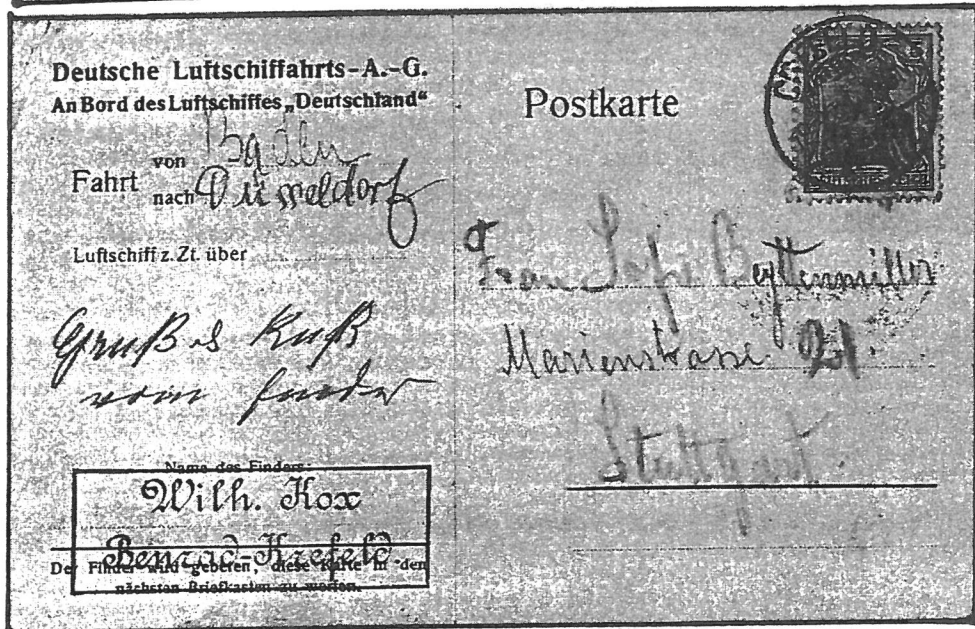 Deutsche Luftschiffahrts-A.-G.
An Bord des Luftschiffes „Deutschland“
von Baden
Fahrt
nach Düsseldorf
Luftschiff z. Zt. über
Gruß & Kuß
vom Finder
Name des Finders:
Wilh. Kox
Benrad-Krefeld
Der Finder wird gebeten, diese Karte in den
nächsten Briefkasten zu werfen.
Postkarte
5 5
Frau Beyttenmiller
Marienstrasse 21
Stuttgart.